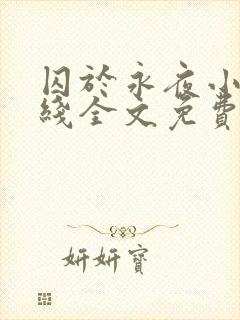 囚於永夜小
綫全文免費
妍妍寶